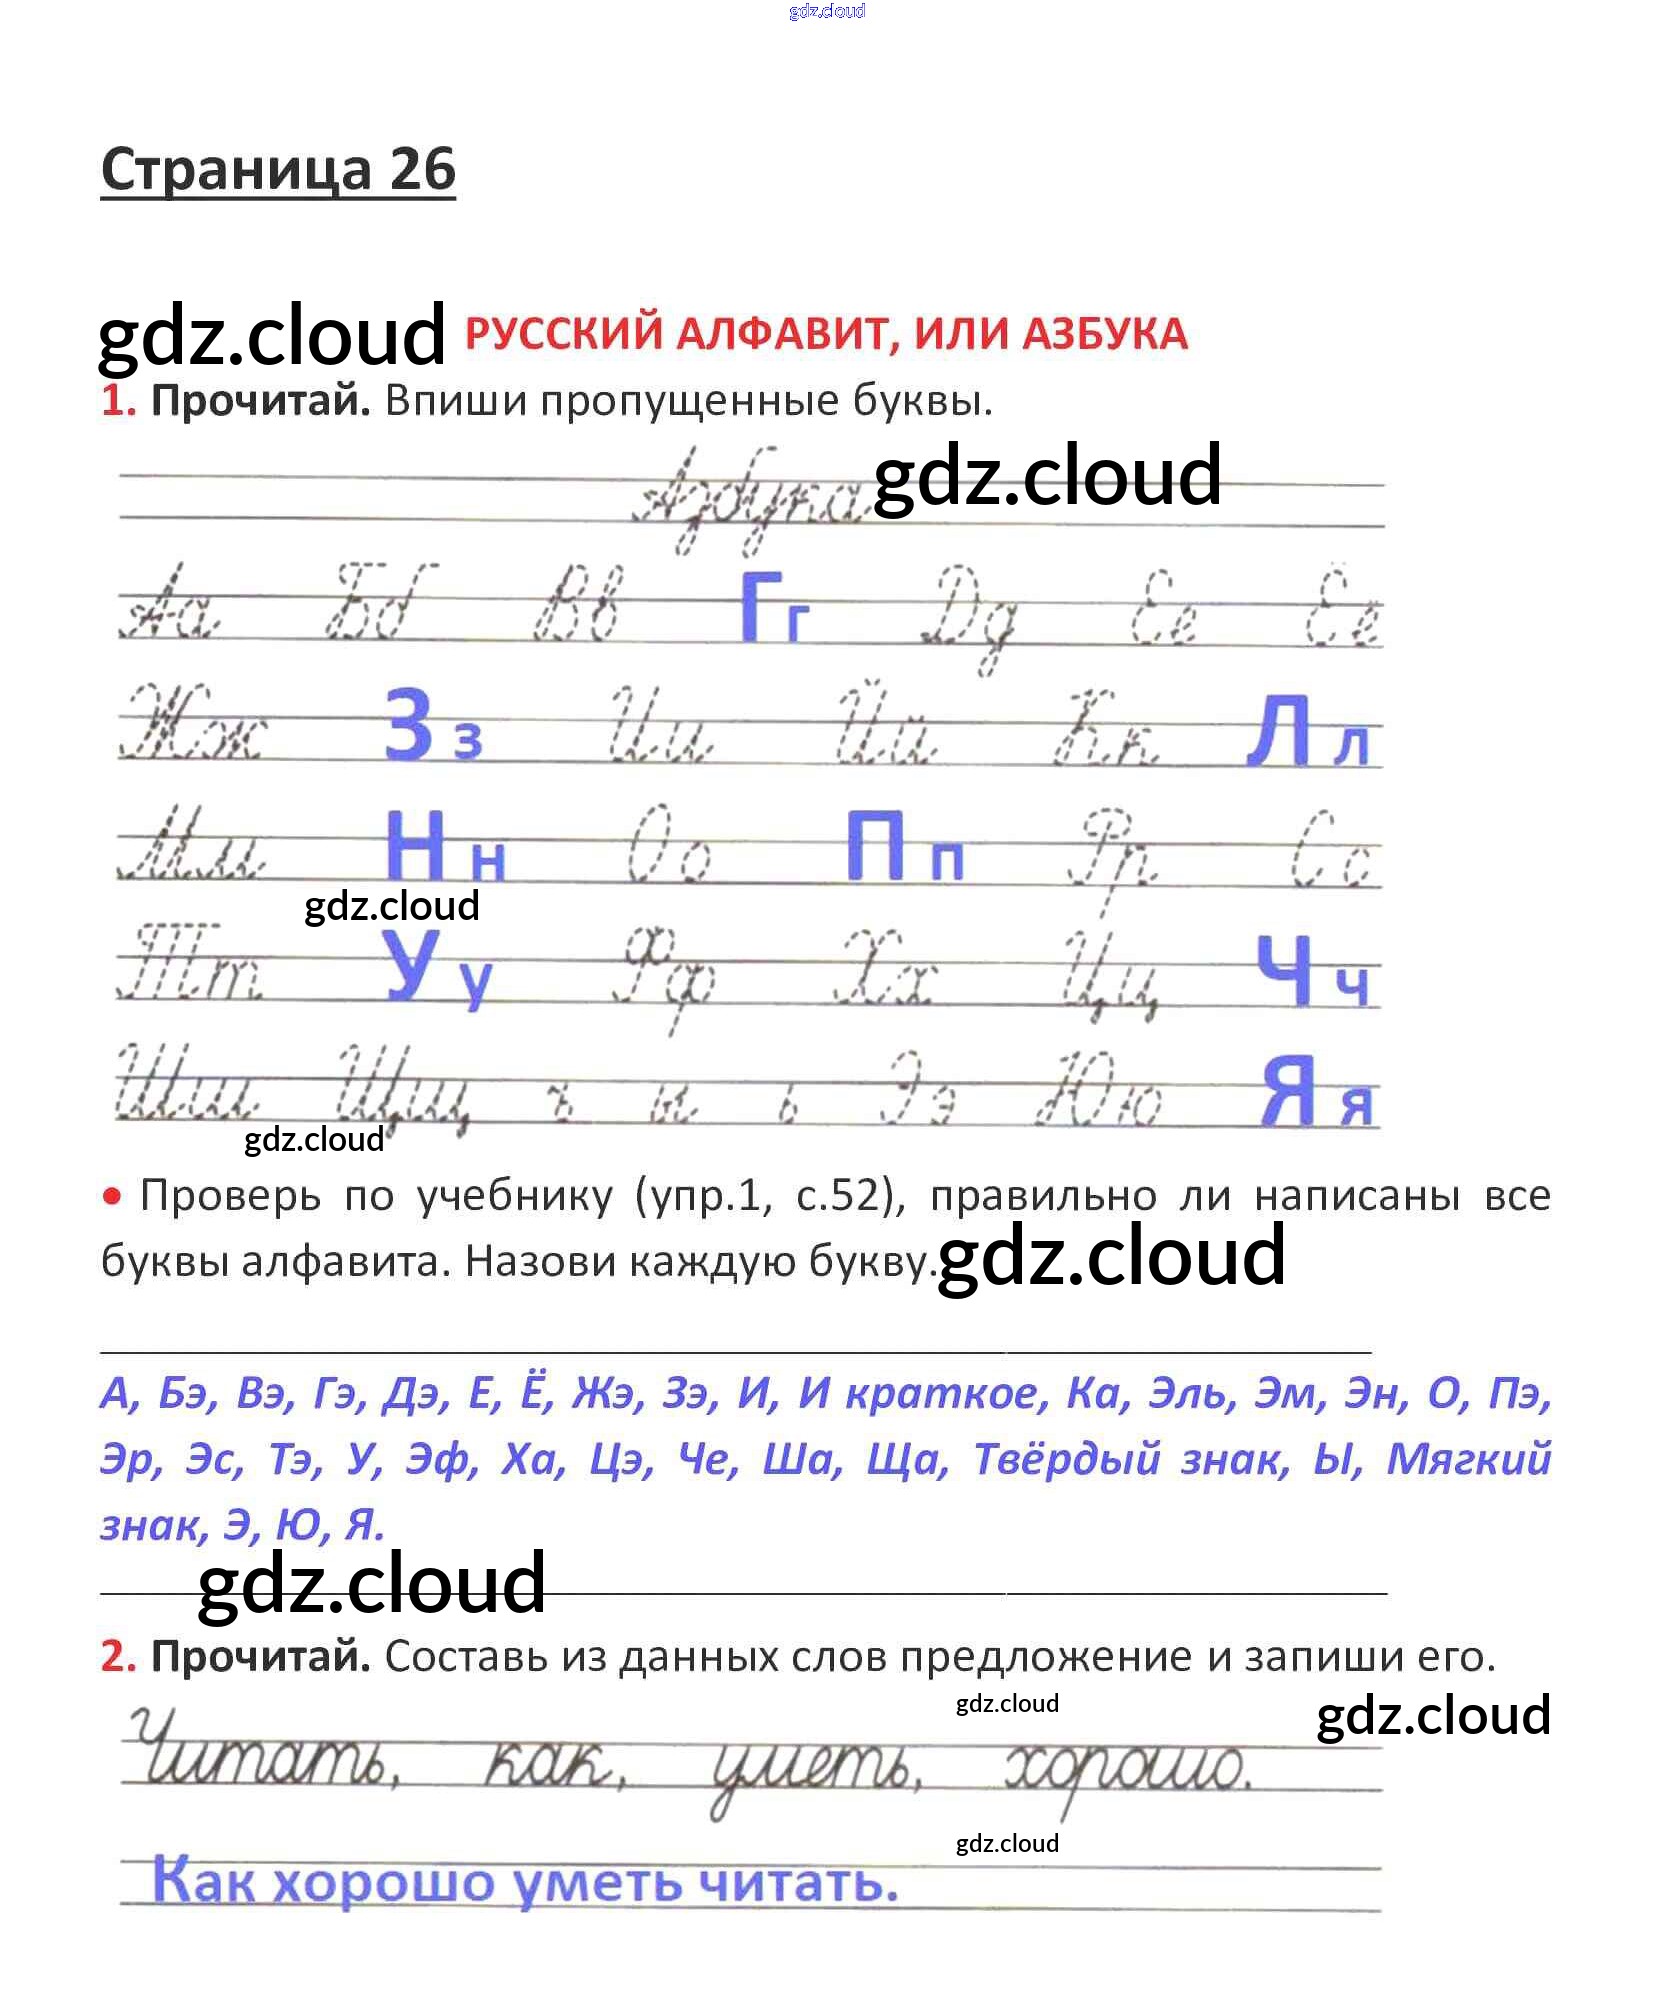 gdz.cloud
Страница 26
gdz.cloud РУССКИЙ АЛФАВИТ, ИЛИ АЗБУКА
1. Прочитай. Впиши пропущенные буквы.
Азбука gdz.cloud
Аа Бб Вв Гг Дд Ее Ёё
Жж Зз Ии Йй Кк Лл
Мм Нн Оо Пп Рр Сс
gdz.cloud
Тт Уу Фф Хх Цц Чч
Шш Щщ ъ ы ь Ээ Юю Яя
gdz.cloud
• Проверь по учебнику (упр.1, с.52), правильно ли написаны все
буквы алфавита. Назови каждую букву. gdz.cloud
А, Бэ, Вэ, Гэ, Дэ, Е, Ё, Жэ, Зэ, И, И краткое, Ка, Эль, Эм, Эн, О, Пэ,
Эр, Эс, Тэ, У, Эф, Ха, Цэ, Че, Ша, Ща, Твёрдый знак, Ы, Мягкий
знак, Э, Ю, Я.
gdz.cloud
2. Прочитай. Составь из данных слов предложение и запиши его.
gdz.cloud gdz.cloud
Читать, как, уметь, хорошо.
gdz.cloud
Как хорошо уметь читать.